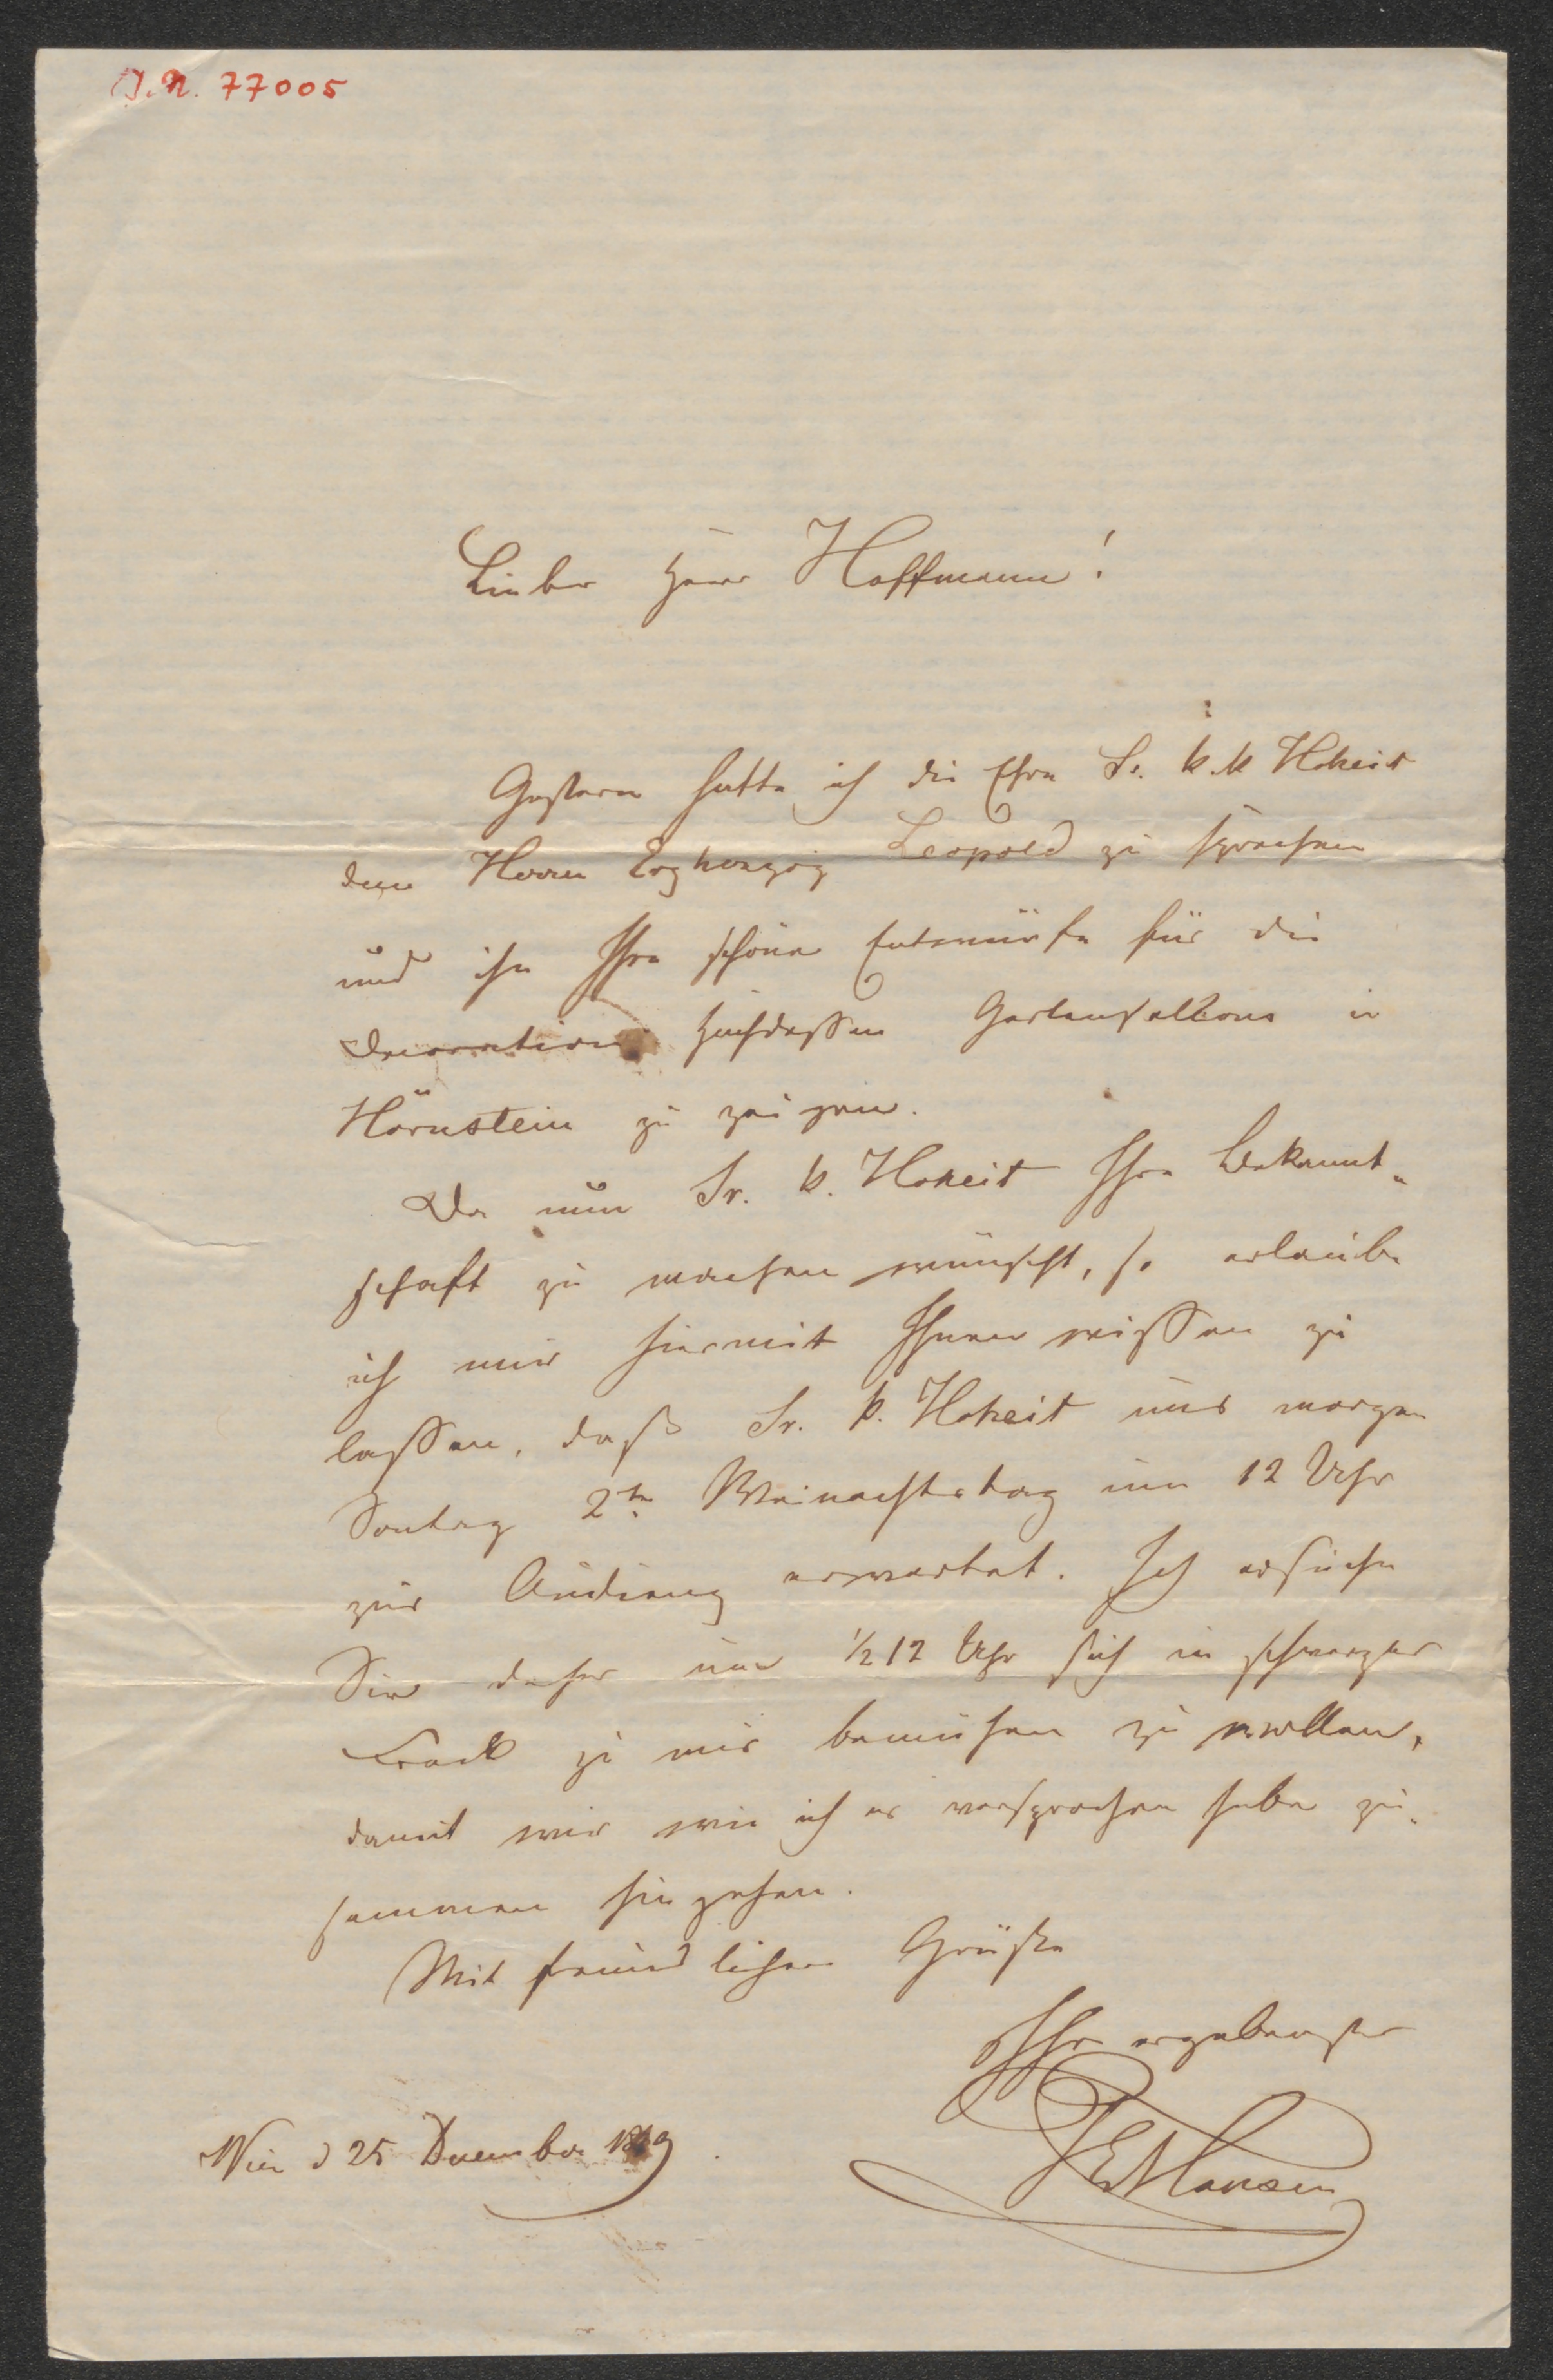 J.N. 77005
Lieber Herr Hoffmann!
Gestern hatte ich die Ehre Sr. k.k Hoheit
den Herrn Erzherzog Leopold zu sprechen
und ihn Ihre schöne Entwürfe für die
Decoration Hochdessen Gartensallons in
Hörnstein zu zeigen.
Da nun Sr. k. Hoheit Ihre Bekannt-
schaft zu machen wünscht, so erlaube
ich mir hiermit Ihnen wissen zu
lassen, daß Sr. k. Hoheit uns morgen
Sontag 2ten Weinachtstag um 12 Uhr
zur Audienz erwartet. Ich ersuche
Sie daher um 1/2 12 Uhr sich in schwarzer
Frack zu mir bemühen zu wollen,
damit wir wie ich es versprochen habe zu-
sammen hin gehen.
Mit freundlichen Grüße
Ihr ergebenster
Hansen
Wien d 25 December 1869